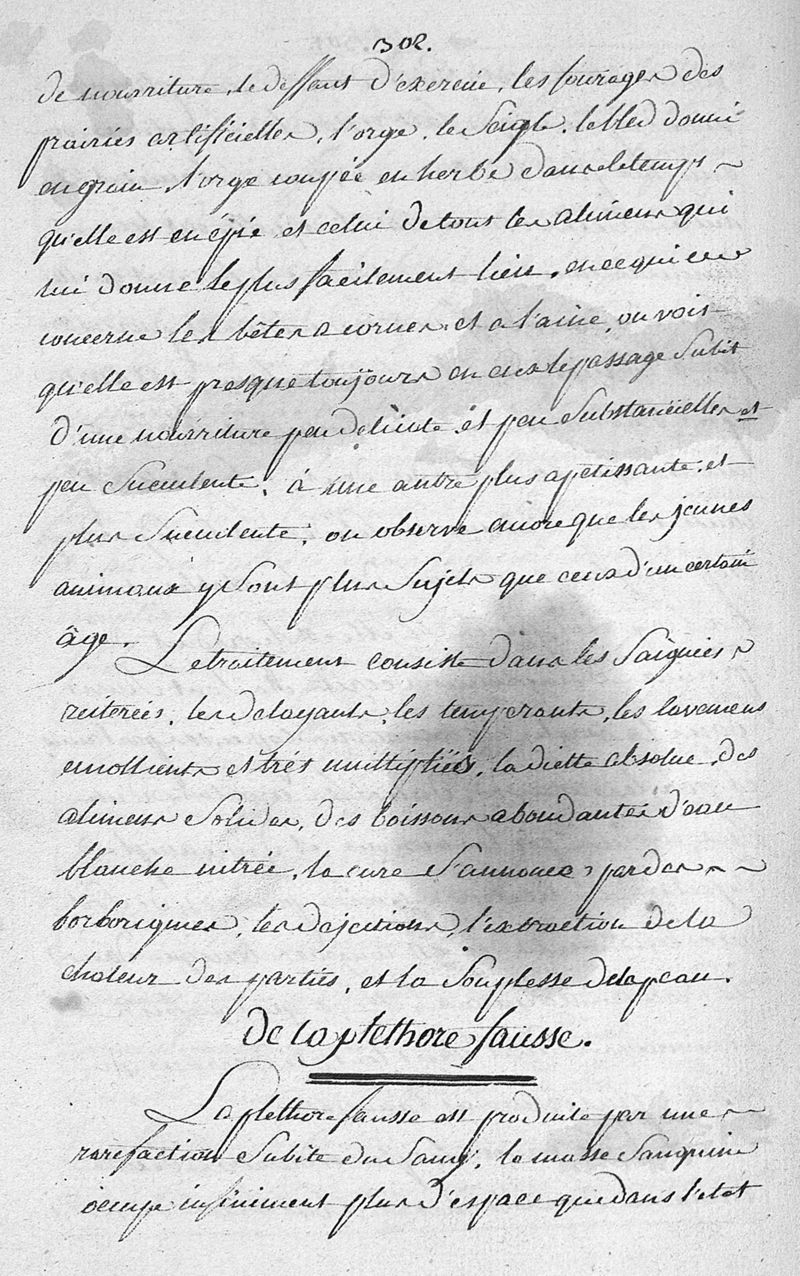 302.
de nourriture, le deffaut d'exercice, les fourages des
prairies artificielles, l'orge, le Seigle, le bled donné
en grain, l'orge coupée en herbe dans le temps ~
qu'elle est en épie et celui de tous les alimens qui
lui donne le plus facilement lieu, en ce qui
concerne les bêtes a cornes et a l'aine, on voit
qu'elle est presque toujours en eux le passage Subit
d'une nourriture peu delicate et peu Substancielles et
peu Suculente, à une autre plus apetissante, et
plus Suculente, on observe encore que les jeunes
animaux y Sont plus Sujets que ceux d'un certain
âge.
Le traitement consiste dans les Saignées ~
reiterées, les delayants, les temperants, les lavemens
emollients et trés multipliés, la diette absolue, des
alimens Solides, des boissons abondantes d'eau
blanche nitrée, la cure S'annonce par des ~ ~
borborigmes, les dejections, l'extraction de la
chaleur des parties, et la Souplesse de la peau.
De la plethore fausse.
La plethore fausse est produite par une ~
rarefaction Subite du Sang, la masse Sanguine
occupe infiniment plus d'espace que dans l'etat